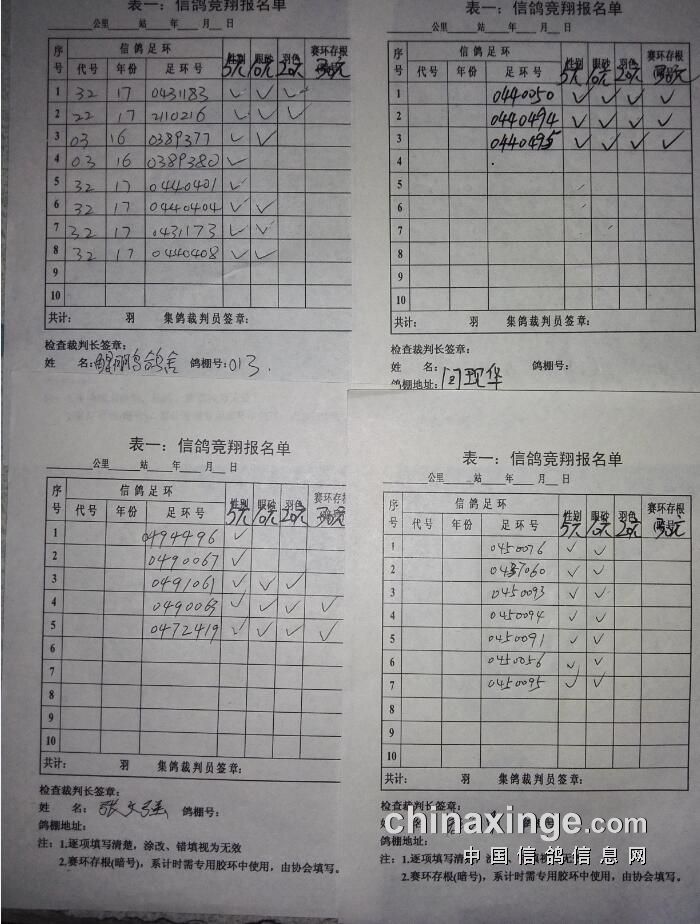 表一：信鸽竞翔报名单
公里 站 年 月 日
序号 信鸽足环 性别 眼砂 羽色 赛环存根
代号 年份 足环号 5元 10元 20元
1 32 17 0431183 ✓ ✓ ✓
2 22 17 2110216 ✓ ✓ ✓
3 03 16 0389377 ✓ ✓
4 03 16 0389380 ✓
5 32 17 0440401 ✓
6 32 17 0440404 ✓ ✓
7 32 17 0431173 ✓ ✓
8 32 17 0440408 ✓ ✓
9
10
共计： 羽 集鸽裁判员签章：
检查裁判长签章：
姓 名： 鸽舍 鸽棚号：013
表一：信鸽竞翔报名单
公里 站 年 月 日
序号 信鸽足环 性别 眼砂 羽色 赛环存根
代号 年份 足环号 5元 10元 20元
1 0440050 ✓ ✓ ✓ ✓
2 0440494 ✓ ✓ ✓ ✓
3 0440495 ✓ ✓ ✓ ✓
4
5
6
7
8
9
10
共计： 羽 集鸽裁判员签章：
检查裁判长签章：
姓 名： 鸽棚号：
鸽棚地址：
表一：信鸽竞翔报名单
公里 站 年 月 日
序号 信鸽足环 性别 眼砂 羽色 赛环存根
代号 年份 足环号 5元 10元 20元
1 0494496 ✓
2 0490067 ✓
3 0491061 ✓ ✓ ✓
4 0490063 ✓ ✓ ✓ ✓
5 0472419 ✓ ✓ ✓ ✓
6
7
8
9
10
共计： 羽 集鸽裁判员签章：
检查裁判长签章：
姓 名：张文强 鸽棚号：
鸽棚地址：
注：1.逐项填写清楚，涂改、错填视为无效
2.赛环存根(暗号)，系计时需专用胶环中使用，由协会填写。
表一：信鸽竞翔报名单
公里 站 年 月 日
序号 信鸽足环 性别 眼砂 羽色 赛环存根
代号 年份 足环号 5元 10元 20元
1 0450076 ✓ ✓
2 0437060 ✓ ✓
3 0450093 ✓ ✓
4 0450094 ✓ ✓
5 0450091 ✓ ✓
6 0450056 ✓ ✓
7 0450095 ✓ ✓
8
9
10
共计： 羽 集鸽裁判员签章：
检查裁判长签章：
姓 名：
鸽棚地址：
注：1.逐项填写清楚，涂改、错填视为无效
2.赛环存根(暗号)，系计时需专用胶环中使用，由协会填写。
chinaxinge.com
中国信鸽信息网